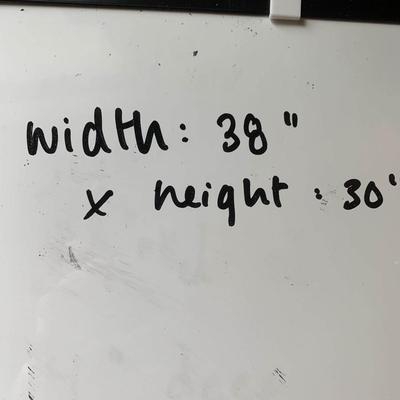 width: 38"
x height: 30'